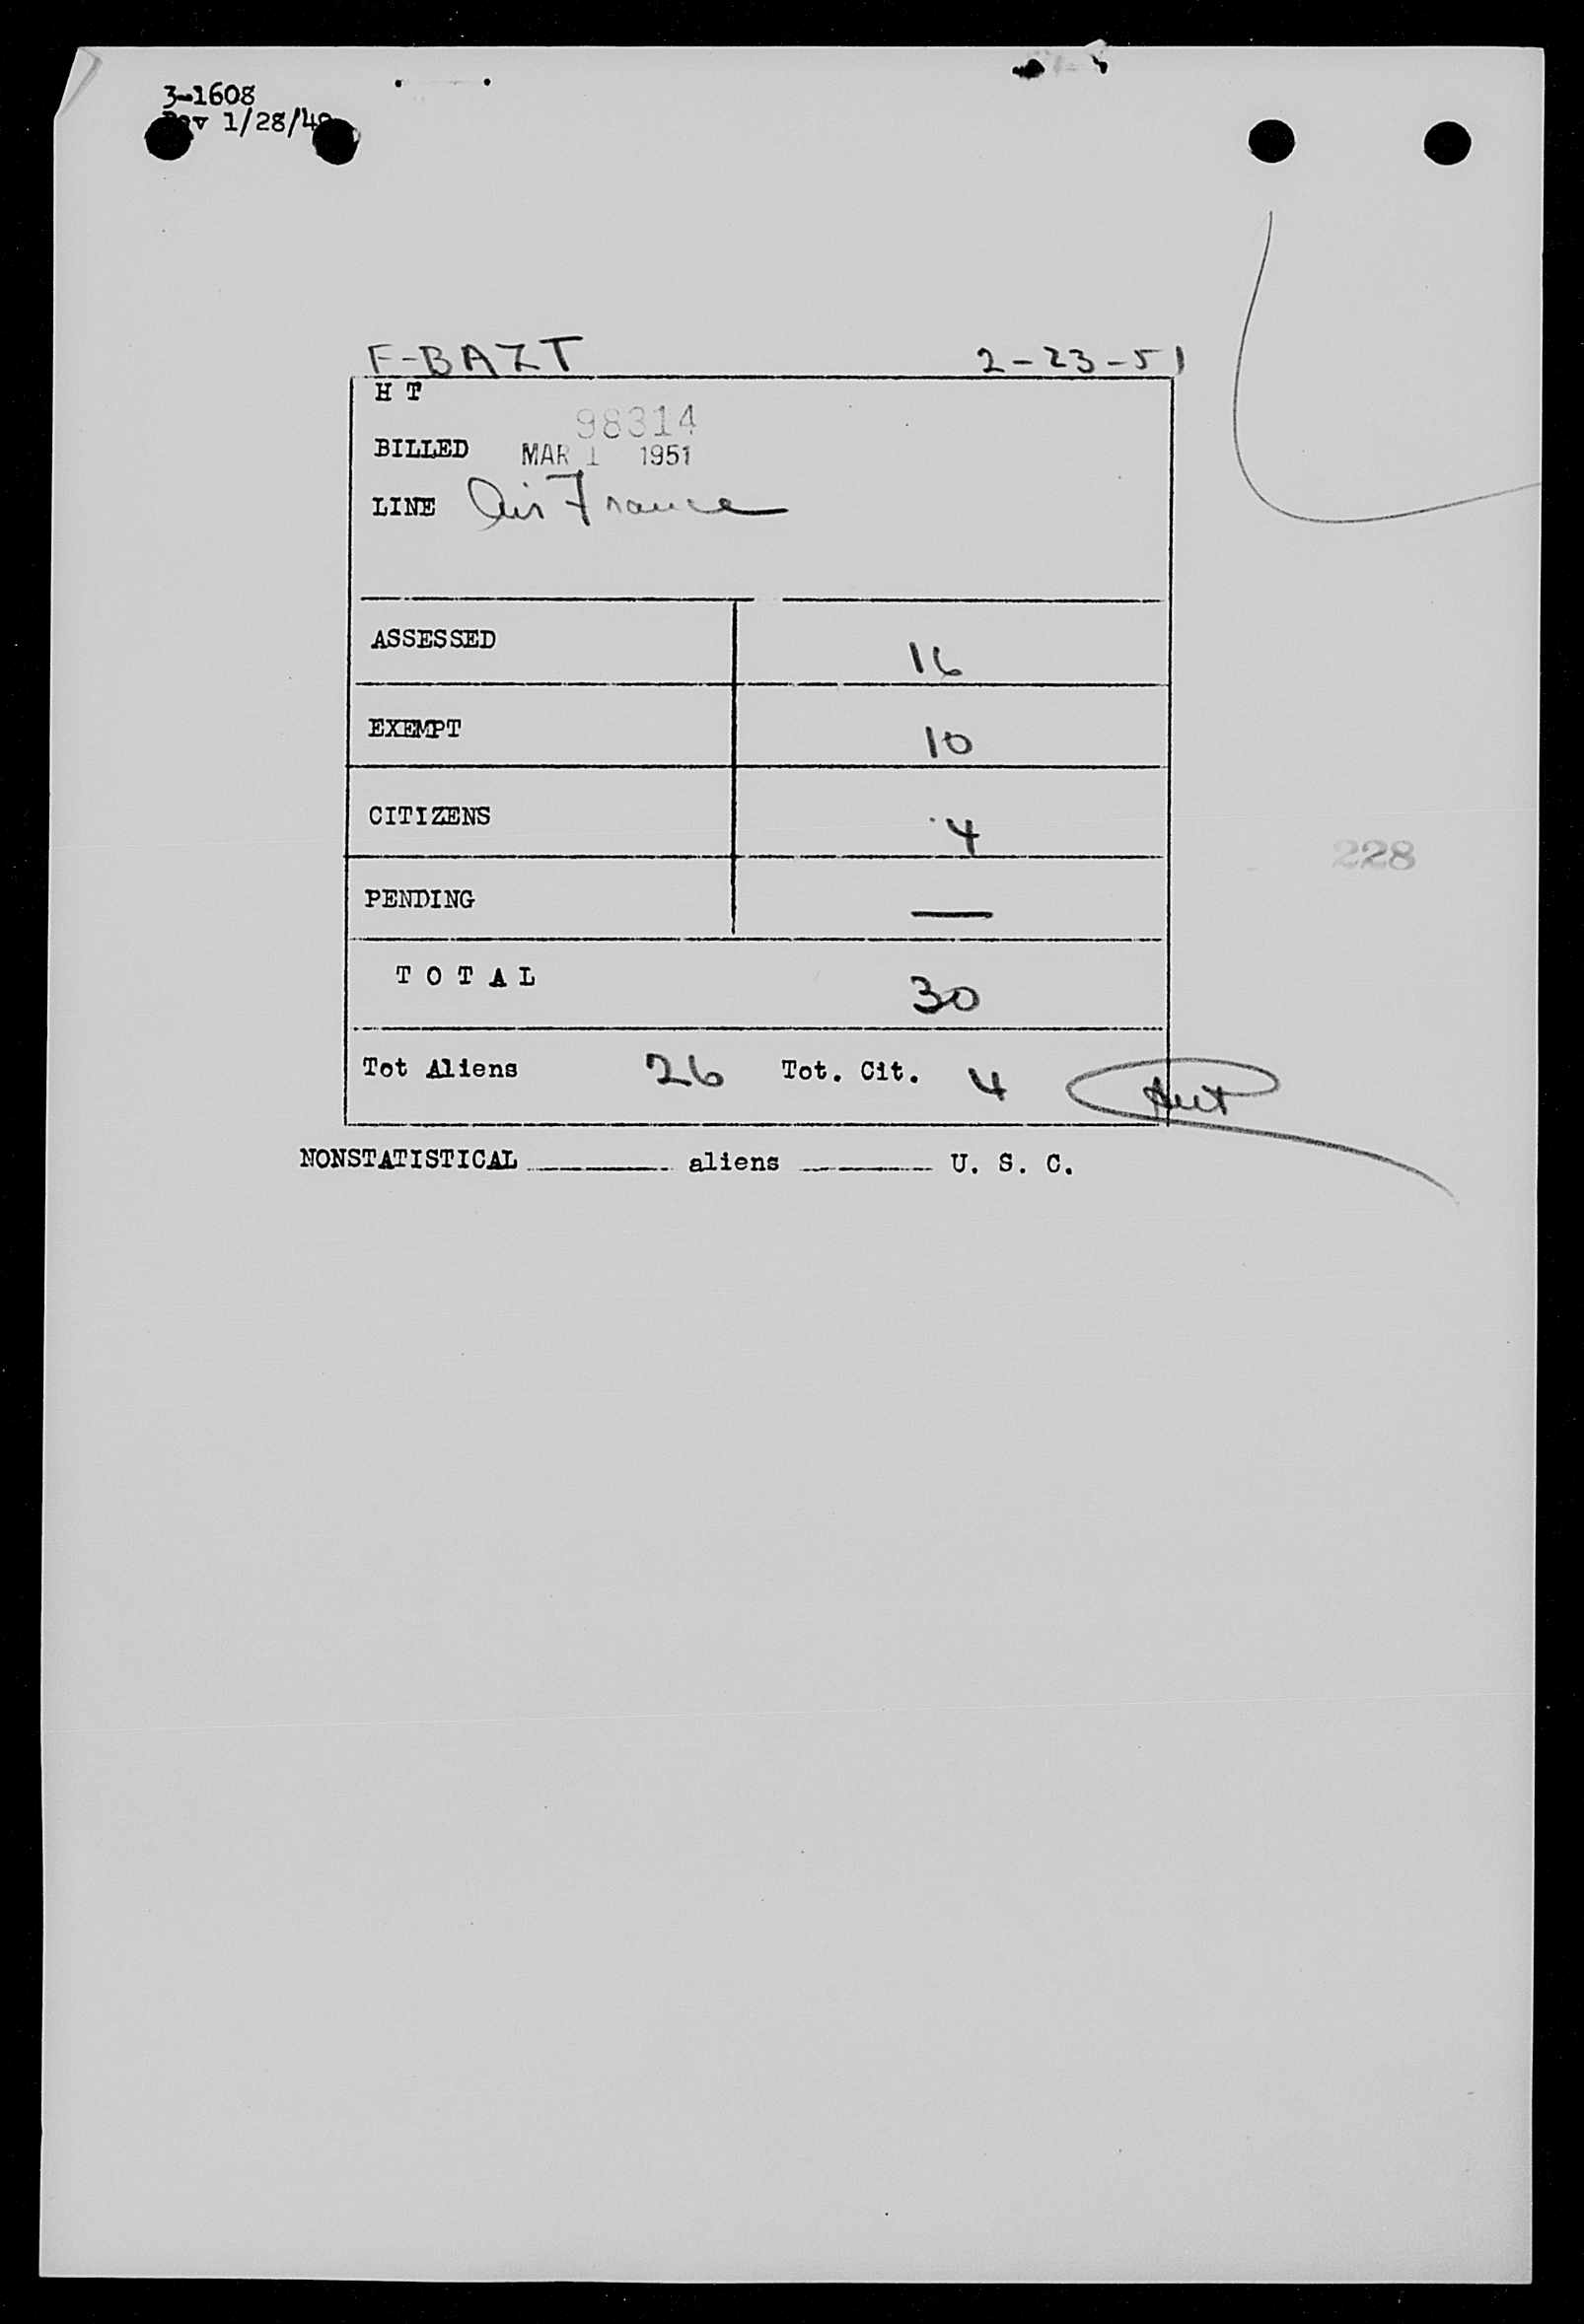 3-1608
Rev 1/28/49
F-BAZT 2-23-51
H T
98314
BILLED MAR 1 1951
LINE Air France
ASSESSED 16
EXEMPT 10
CITIZENS 4
228
PENDING —
T O T A L 30
Tot Aliens 26 Tot. Cit. 4
NONSTATISTICAL ________ aliens ________ U. S. C.